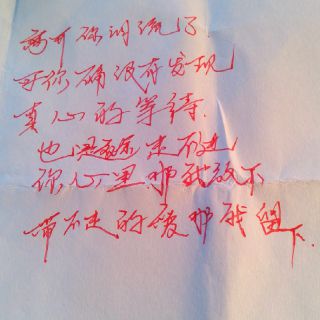 离开你泪流了
可你确没有发现
真心的等待.
也走不进
你心里那我放下
带不走的爱那我留下.